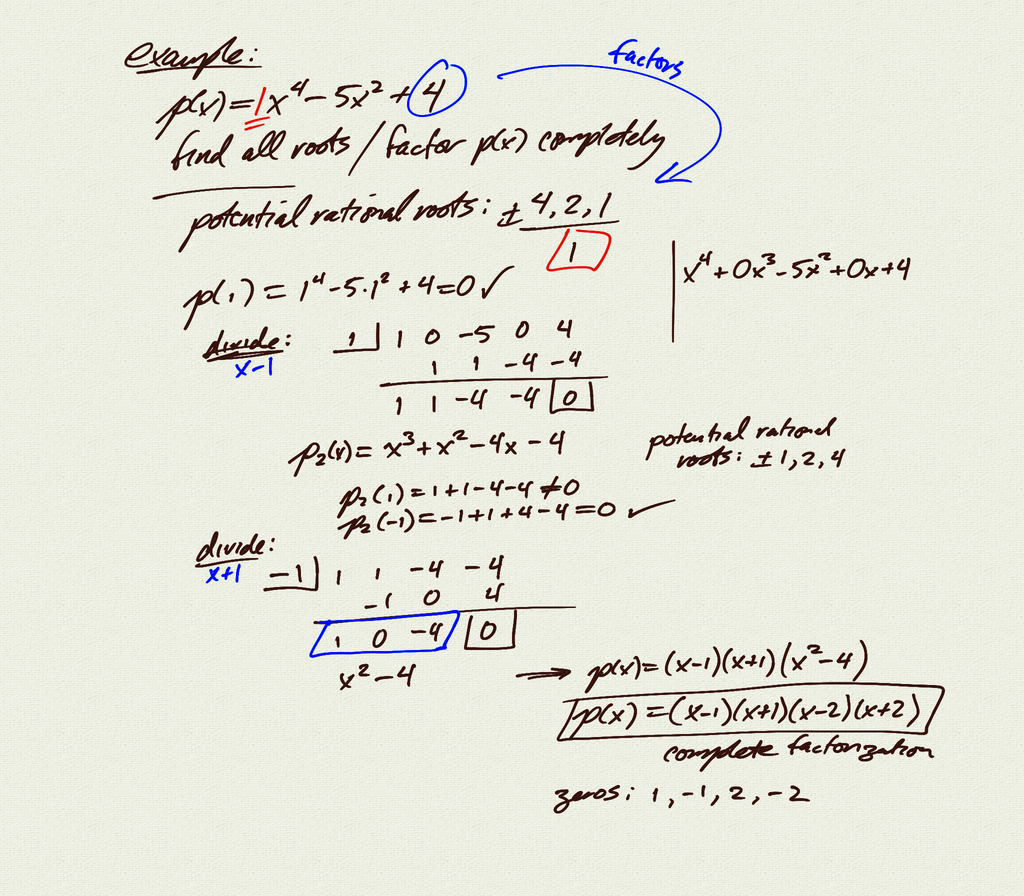 example:
factors
p(x) = 1x⁴ - 5x² + 4
find all roots / factor p(x) completely
potential rational roots: ± 4, 2, 1
1
x⁴ + 0x³ - 5x² + 0x + 4
p(1) = 1⁴ - 5·1² + 4 = 0 ✓
divide: 1 | 1 0 -5 0 4
x-1
1 1 -4 -4
1 1 -4 -4 0
p₂(x) = x³ + x² - 4x - 4
potential rational
roots: ± 1, 2, 4
p₂(1) = 1+1-4-4 ≠ 0
p₂(-1) = -1+1+4-4 = 0 ✓
divide:
x+1
-1 | 1 1 -4 -4
-1 0 4
1 0 -4 0
x² - 4
→ p(x) = (x-1)(x+1)(x²-4)
p(x) = (x-1)(x+1)(x-2)(x+2)
complete factorization
zeros: 1, -1, 2, -2